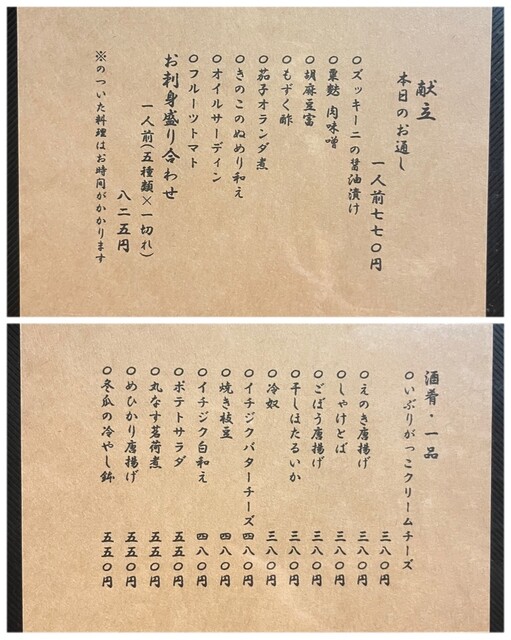 献立
本日のお通し
一人前七七〇円
〇ズッキーニの醤油漬け
〇粟麩 肉味噌
〇胡麻豆富
〇もずく酢
〇茄子オランダ煮
〇きのこのぬめり和え
〇オイルサーディン
〇フルーツトマト
お刺身盛り合わせ
一人前(五種類×一切れ)
八二五円
※のついた料理はお時間がかかります
酒肴・一品
〇いぶりがっこクリームチーズ
三八〇円
〇えのき唐揚げ 三八〇円
〇しゃけとば 三八〇円
〇ごぼう唐揚げ 三八〇円
〇干しほたるいか 三八〇円
〇冷奴 三八〇円
〇イチジクバターチーズ 四八〇円
〇焼き枝豆 四八〇円
〇イチジク白和え 四八〇円
〇ポテトサラダ 五五〇円
〇丸なす茗荷煮 五五〇円
〇めひかり唐揚げ 五五〇円
〇冬瓜の冷やし鉢 五五〇円